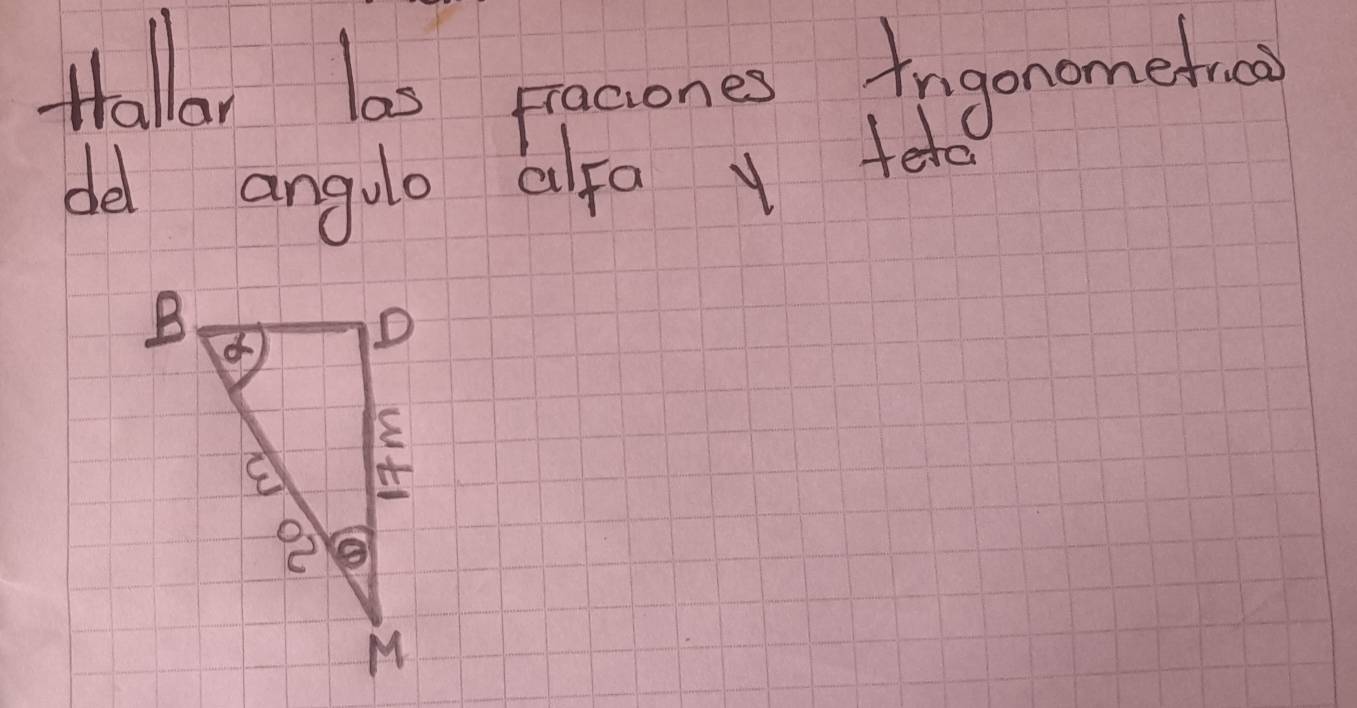 Hallar las Fraciones trigonometricas
del angulo alfa y teta
B
D
α
θ
M